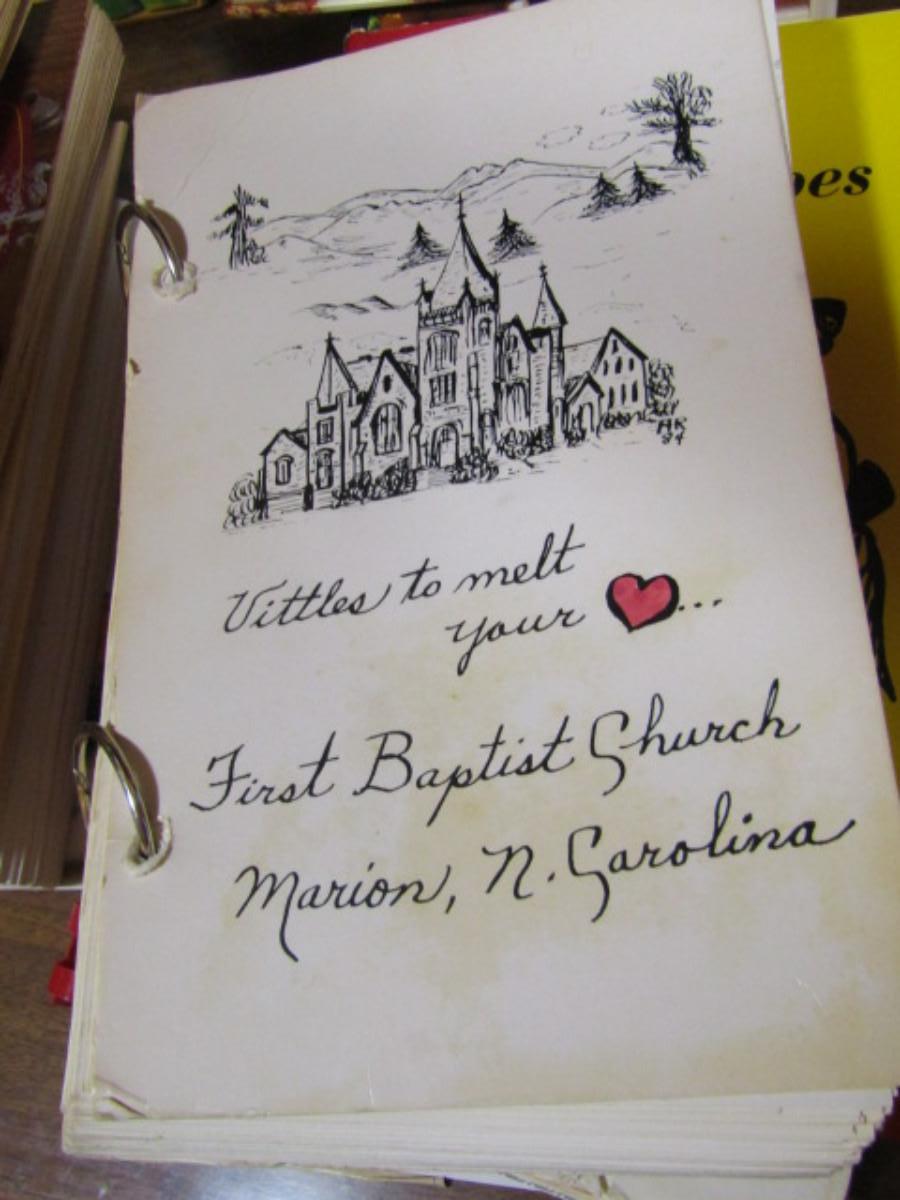 Vittles to melt
your ❤...
First Baptist Church
Marion, N. Carolina